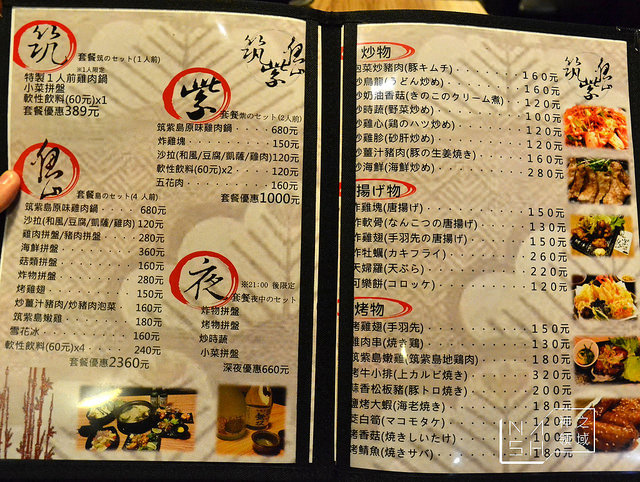 筑
套餐筑のセット(1人前)
※1人限定
特製1人前雞肉鍋
小菜拼盤
軟性飲料(60元)x1
套餐優惠389元
筑紫島
紫
套餐紫のセット(2人前)
筑紫島原味雞肉鍋 680元
炸雞塊 150元
沙拉(和風/豆腐/凱薩/雞肉)120元
軟性飲料(60元)x2 120元
五花肉 160元
套餐優惠1000元
島
套餐島のセット(4人前)
筑紫島原味雞肉鍋 680元
沙拉(和風/豆腐/凱薩/雞肉)120元
雞肉拼盤/豬肉拼盤 280元
海鮮拼盤 360元
菇類拼盤 160元
炸物拼盤 280元
烤雞翅 150元
炒薑汁豬肉/炒豬肉泡菜 160元
筑紫島嫩雞 180元
雪花冰
軟性飲料(60元)x4 240元
套餐優惠2360元
夜
※21:00 後限定
套餐夜中のセット
炸物拼盤
烤物拼盤
炒時蔬
小菜拼盤
深夜優惠660元
炒物
筑紫島
泡菜炒豬肉(豚キムチ) 160元
炒烏龍(うどん炒め) 160元
炒奶油香菇(きのこのクリーム煮) 120元
炒時蔬(野菜炒め) 100元
炒雞心(鶏のハツ炒め) 120元
炒雞胗(砂肝炒め) 120元
炒薑汁豬肉(豚の生姜焼き) 160元
炒海鮮(海鮮炒め) 280元
揚げ物
炸雞塊(唐揚げ) 150元
炸軟骨(なんこつの唐揚げ) 130元
炸雞翅(手羽先の唐揚げ) 150元
炸牡蠣(カキフライ) 260元
天婦羅(天ぷら) 220元
可樂餅(コロッケ) 120元
烤物
烤雞翅(手羽先) 150元
雞肉串(焼き鶏) 130元
筑紫島嫩雞(筑紫島地鶏肉) 180元
烤牛小排(上カルビ焼き) 320元
蒜香松板豬(豚トロ焼き) 200元
鹽烤大蝦(海老焼き) 180元
茭白筍(マコモタケ) 120元
烤香菇(焼きしいたけ) 100元
烤鯖魚(焼きサバ) 180元